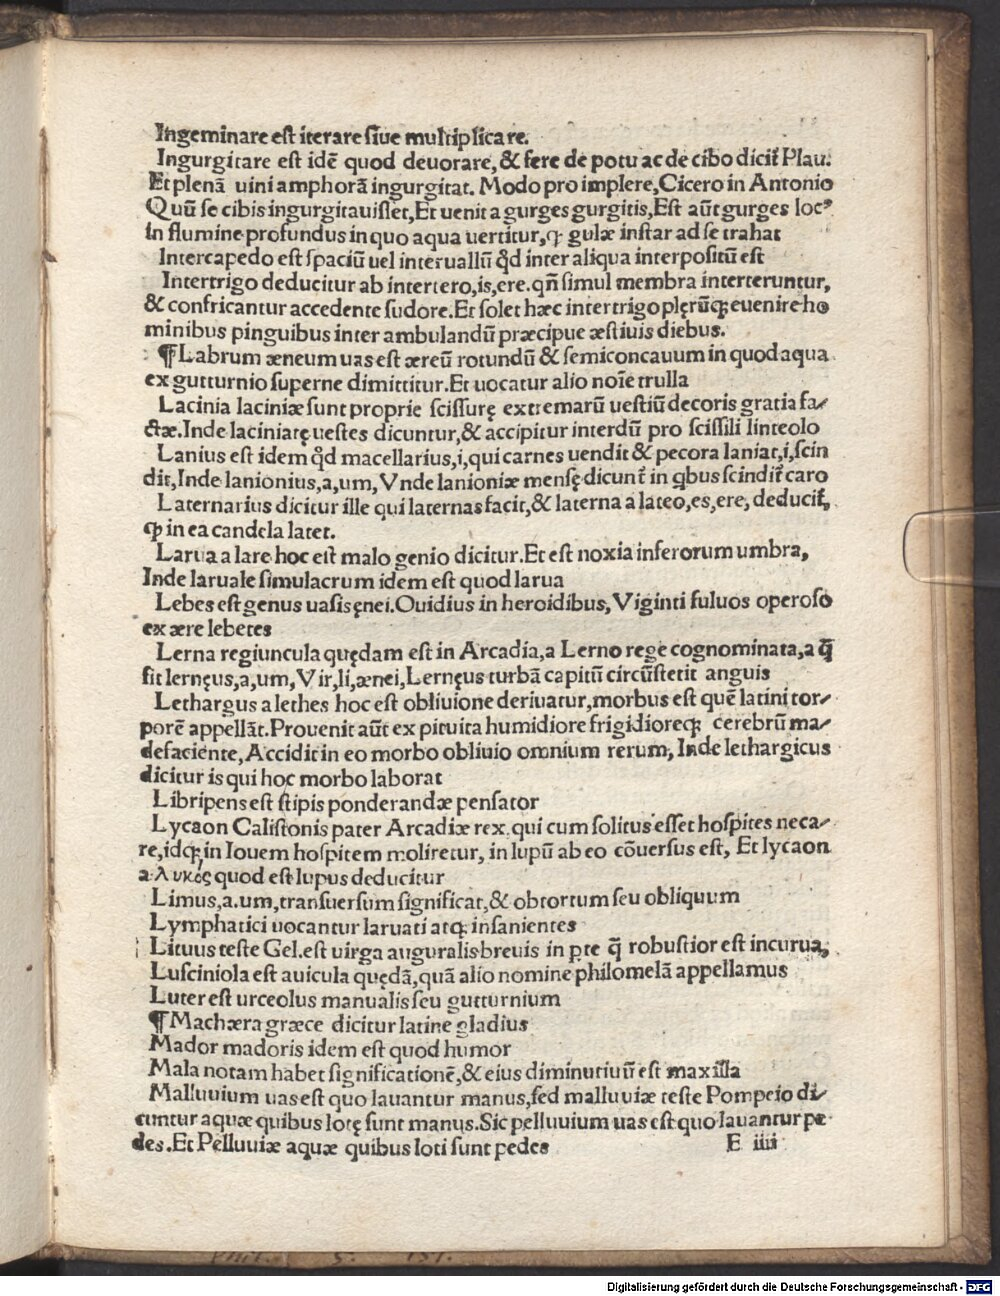 Ingeminare est iterare siue multiplicare.
Ingurgitare est idē quod deuorare, & fere de potu ac de cibo dicit̄ Plau.
Et plenā uini amphorā ingurgitat. Modo pro implere, Cicero in Antonio
Quū se cibis ingurgitauisset, Et uenit a gurges gurgitis, Est aūt gurges locꝰ
in flumine profundus in quo aqua uertitur, ꝙ gulæ instar ad se trahat
Intercapedo est spaciū uel interuallū qđ inter aliqua interpositū est
Intertrigo deducitur ab intertero, is, ere. qñ simul membra interteruntur,
& confricantur accedente sudore. Et solet hæc intertrigo plęrūqꝫ euenire ho
minibus pinguibus inter ambulandū præcipue æstiuis diebus.
¶ Labrum æneum uas est æreū rotundū & semiconcauum in quod aqua
ex gutturnio superne dimittitur. Et uocatur alio noīe trulla
Lacinia laciniæ sunt proprie scissurę extremarū uestiū decoris gratia fa-
ctæ. Inde laciniatę uestes dicuntur, & accipitur interdū pro scissili linteolo
Lanius est idem qđ macellarius, i, qui carnes uendit & pecora laniat, i, scin
dit, Inde lanionius, a, um, Vnde lanioniæ mensę dicunt̄ in qbus scindit̄ caro
Laternarius dicitur ille qui laternas facit, & laterna a lateo, es, ere, deducit̄,
ꝙ in ea candela latet.
Larua a lare hoc est malo genio dicitur. Et est noxia inferorum umbra,
Inde laruale simulacrum idem est quod larua
Lebes est genus uasis ęnei. Ouidius in heroidibus, Viginti fuluos operoso
ex ære lebetes
Lerna regiuncula quędam est in Arcadia, a Lerno rege cognominata, a q̄
fit lernęus, a, um, Vir, li, ænei, Lernęus turbā capitū circūstetit anguis
Lethargus a lethes hoc est obliuione deriuatur, morbus est quē latini tor-
porē appellāt. Prouenit aūt ex pituita humidiore frigidioreqꝫ cerebrū ma-
defaciente, Accidit in eo morbo obliuio omnium rerum, Inde lethargicus
dicitur is qui hoc morbo laborat
Libripens est stipis ponderandæ pensator
Lycaon Calistonis pater Arcadiæ rex. qui cum solitus esset hospites neca-
re, idqꝫ in Iouem hospitem moliretur, in lupū ab eo cōuersus est, Et lycaon
a λυκός quod est lupus deducitur
Limus, a. um, transuersum significat, & obtortum seu obliquum
Lymphatici uocantur laruati atqꝫ insanientes
Lituus teste Gel. est uirga auguralis breuis in pte q̄ robustior est incurua,
Lusciniola est auicula quędā, quā alio nomine philomelā appellamus
Luter est urceolus manualis seu gutturnium
¶ Machæra græce dicitur latine gladius
Mador madoris idem est quod humor
Mala notam habet significationē, & eius diminutiuū est maxilla
Malluuium uas est quo lauantur manus, sed malluuiæ teste Pompeio di-
cuntur aquæ quibus lotę sunt manus. Sic pelluuium uas est quo lauantur pe
des. Et Pelluuiæ aquæ quibus loti sunt pedes
E iiii
Digitalisierung gefördert durch die Deutsche Forschungsgemeinschaft - DFG